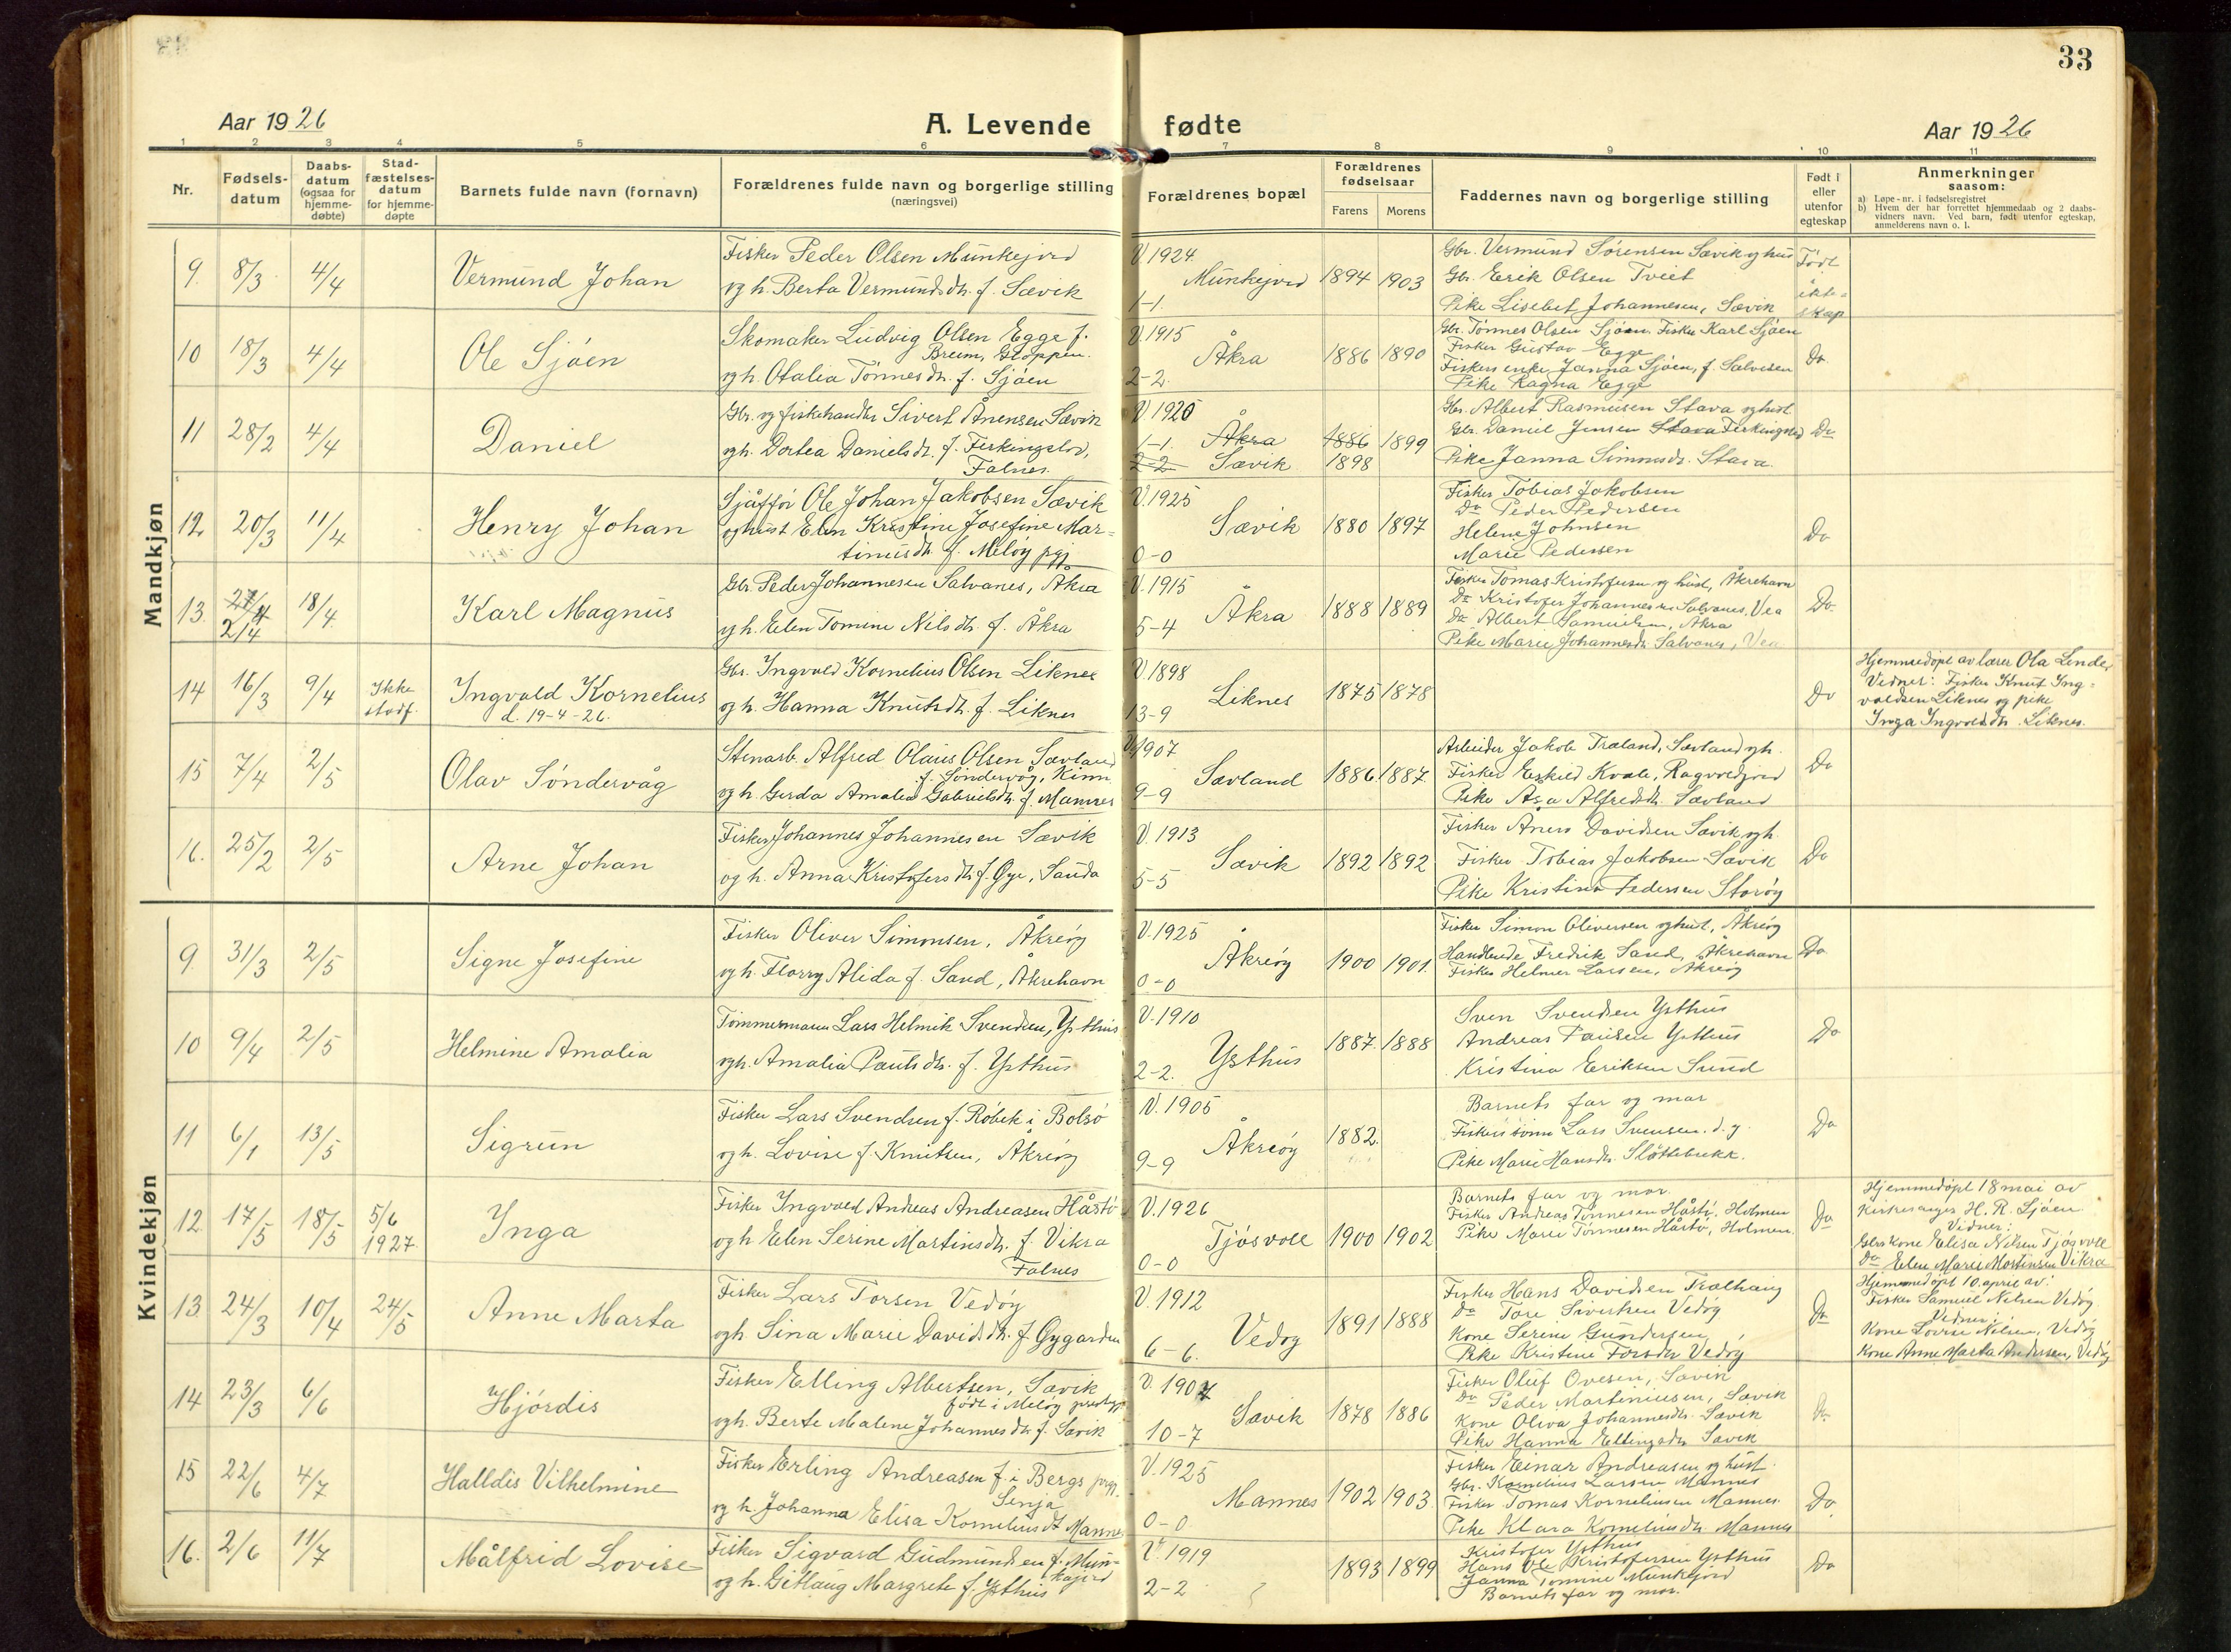 33
Aar 1926
A. Levende fødte
Aar 1926
1 2 3 4 5 6 7 8 9 10 11
Nr.
Fødsels-
datum
Daabs-
datum
(ogsaa for
hjemme-
døbte)
Stad-
fæstelses-
datum
for hjemme-
døpte
Barnets fulde navn (fornavn)
Forældrenes fulde navn og borgerlige stilling
(næringsvei)
Forældrenes bopæl
Forældrenes
fødselsaar
Farens Morens
Faddernes navn og borgerlige stilling
Født i
eller
utenfor
egteskap
Anmerkninger
saasom:
a) Løpe-nr. i fødselsregistret
b) Hvem der har forrettet hjemmedaab og 2 daabs-
vidners navn. Ved barn, født utenfor egteskap,
anmelderens navn o. l.
Mandkjøn
9. 8/3 4/4
Vermund Johan
Fisker Peder Olsen Munkejord
og h. Berta Vermundsdtr. f. Sævik
V. 1924
Munkejord
1-1.
1894 1903
Gbr. Vermund Sørensen Sævik og hus
Gbr. Erik Olsen Tveit
Pike Lisebet Johannesen, Sævik
Født
i ekte-
skap
10 18/3 4/4
Ole Sjøen
Skomaker Ludvig Olsen Egge f.
Breim, Gloppen.
og h. Otalia Tønnesdtr. f. Sjøen
V. 1915
Åkra
2-2.
1886 1890
Gbr. Tønnes Olsen Sjøen. Fisker Karl Sjøen
Fisker Gustav Egge
Fiskers enke Janna Sjøen, f. Salvesen
Pike Ragna Egge
Do.
11 28/2 4/4
Daniel
Gbr. og fiskehandler Sivert Ånensen Sævik
og h. Dortea Danielsdtr. f. Ferkingstad,
Falnes.
V. 1920
1-1. Åkra
2-2 Sævik
1886 1899
1898
Gbr. Albert Rasmusen Stava og hust.
Gbr. Daniel Jensen Stava Ferkingstad
Pike Janna Simonsdtr. Stava.
Do
12. 20/3 11/4
Henry Johan
Sjåffør Ole Johan Jakobsen Sævik
og hust Elen Kristine Josefine Mar-
tinusdtr. f. Meløy pgj
V. 1925
Sævik
0-0
1880 1897
Fisker Tobias Jakobsen
Do Peder Pedersen
Helene Johnsen
Marie Pedersen
Do
13. 2/4 18/4
Karl Magnus
Gbr. Peder Johannesen Salvanes, Åkra
og h. Elen Tomine Nilsdtr. f. Åkra
V. 1915
Åkra
5-4
1888 1889
Fisker Tomas Kristofersen og hust, Åkrehavn
Do Kristofer Johannesen Salvanes, Vea
Do Albert Samuelsen, Åkra
Pike Marie Johannesdtr Salvanes, Vea
Do.
14 16/3 9/4 Ikke
stadf.
Ingvald Kornelius
d. 19-4-26.
Gbr. Ingvald Kornelius Olsen Liknes
og h. Hanna Knutsdtr. f. Liknes
V. 1898
Liknes
13-9
1875 1878
Do
Hjemmedøpt av lærer Ola Linde
Vidner: Fisker Knut Ing-
valdsen Liknes og pike
Inga Ingvaldsdtr. Liknes.
15 7/4 2/5
Olav Søndervåg
Stenarb. Alfred Olaus Olsen Sævland
f. Søndervåg, Kinn
og h. Gerda Amalia Gabrielsdtr. f. Mannes
V. 1907
Sævland
9-9
1886 1887.
Arbeider Jakob Træland, Sævland og h.
Fisker Eskild Kvale, Ragvaldjord
Pike Asa Alfredsdtr. Sævland
Do
16. 25/2 2/5
Arne Johan
Fisker Johannes Johannesen Sævik
og h. Anna Kristofersdtr. f. Øye, Sauda
V. 1913
Sævik
5-5
1892 1892
Fisker Aners Davidsen Sævik og h.
Fisker Tobias Jakobsen Sævik
Pike Kristina Pedersen Storøy
Do
Kvindekjøn
9. 31/3 2/5
Signe Josefine
Fisker Oliver Simonsen, Åkreøy
og h. Florry Alida f. Sand, Åkrehavn
V. 1925
Åkreøy
0-0
1900 1901.
Fisker Simon Oliversen og hust, Åkreøy
Handlende Fredrik Sand, Åkrehavn
Fisker Helmer Larsen, Åkreøy
Do
10 9/4 2/5
Helmine Amalia
Tømmermann Lars Helmik Svendsen, Ysthus
og h. Amalia Paulsdtr. f. Ysthus
V. 1910
Ysthus
2-2.
1887. 1888
Sven Svendsen Ysthus
Andreas Paulsen Ysthus
Kristina Eriksen Sund
Do
11 6/1 13/5
Sigrun
Fisker Lars Svendsen f. Røbek i Bolsø
og h. Lovise f. Knutsen, Åkreøy
V. 1905
Åkreøy
9-9
1882.
Barnets far og mor
Fiskers sønn Lars Svensen. d. y.
Pike Marie Hansdtr. Sløttebrekk.
Do
12. 17/5 18/5 5/6
1927.
Inga
Fisker Ingvald Andreas Andreasen Håstø
og h Elen Serine Martinsdtr. f. Vikra
Falnes
V. 1926
Tjøsvoll
0-0
1900 1902
Barnets far og mor.
Fisker Andreas Tønnesen Håstø, Holmen
Pike Marie Tønnesen Håstø, Holmen.
Do
Hjemmedøpt 18 mai av
kirkesanger H. R. Sjøen
Vidner:
Gbrs kone Elisa Nilsen Tjøsvoll
Do Elen Marie Mortensen Vikra
13. 24/3 10/4 24/5
Anne Marta
Fisker Lars Torsen Vedøy
og h. Sina Marie Davidsdtr. f. Gygarden
V. 1912
Vedøy
6-6.
1891 1888
Fisker Hans Davidsen Trælhaug
Do Tore Sivertsen Vedøy
Kone Serine Gundersen
Pike Kristine Torsdtr Vedøy
Do
Hjemmedøpt 10. april av:
Fisker Samuel Nilsen Vedøy
Vidner:
Kone Lovise Nilsen, Vedøy
Kone Anne Marta Andersen, Vedøy
14 23/3 6/6
Hjørdis
Fisker Elling Albertsen, Sævik
født i Meløy prestegj
og h. Berte Malene Johannesdtr f. Sævik
V. 1907
Sævik
10-7
1878 1886
Fisker Oluf Ovesen, Sævik
Do Peder Martiniusen, Sævik
Kone Oliva Johannesdtr. Sævik
Pike Hanna Ellingsdtr Sævik
Do
15 22/6 4/7
Halldis Vilhelmine
Fisker Erling Andreasen f. i Bergs prgj.
Senja
og h. Johanna Elisa Korneliusdt Mannes
V. 1925
Mannes
0-0
1902 1903
Fisker Einar Andreasen og hust.
Gbr. Kornelius Larsen Mannes
Fisker Tomas Korneliusen Mannes.
Pike Klara Korneliusdtr Mannes
Do
16. 2/6 11/7
Målfrid Lovise
Fisker Sigvard Gudmundsen f. Mun-
kajord
og h. Gitlaug Margrete f. Ysthus
V. 1919
2-2
1893 1899
Kristofer Ysthus
Hans Ole Kristofersen Ysthus
Janna Tomine Munkejord
Barnets far og mor.
Do